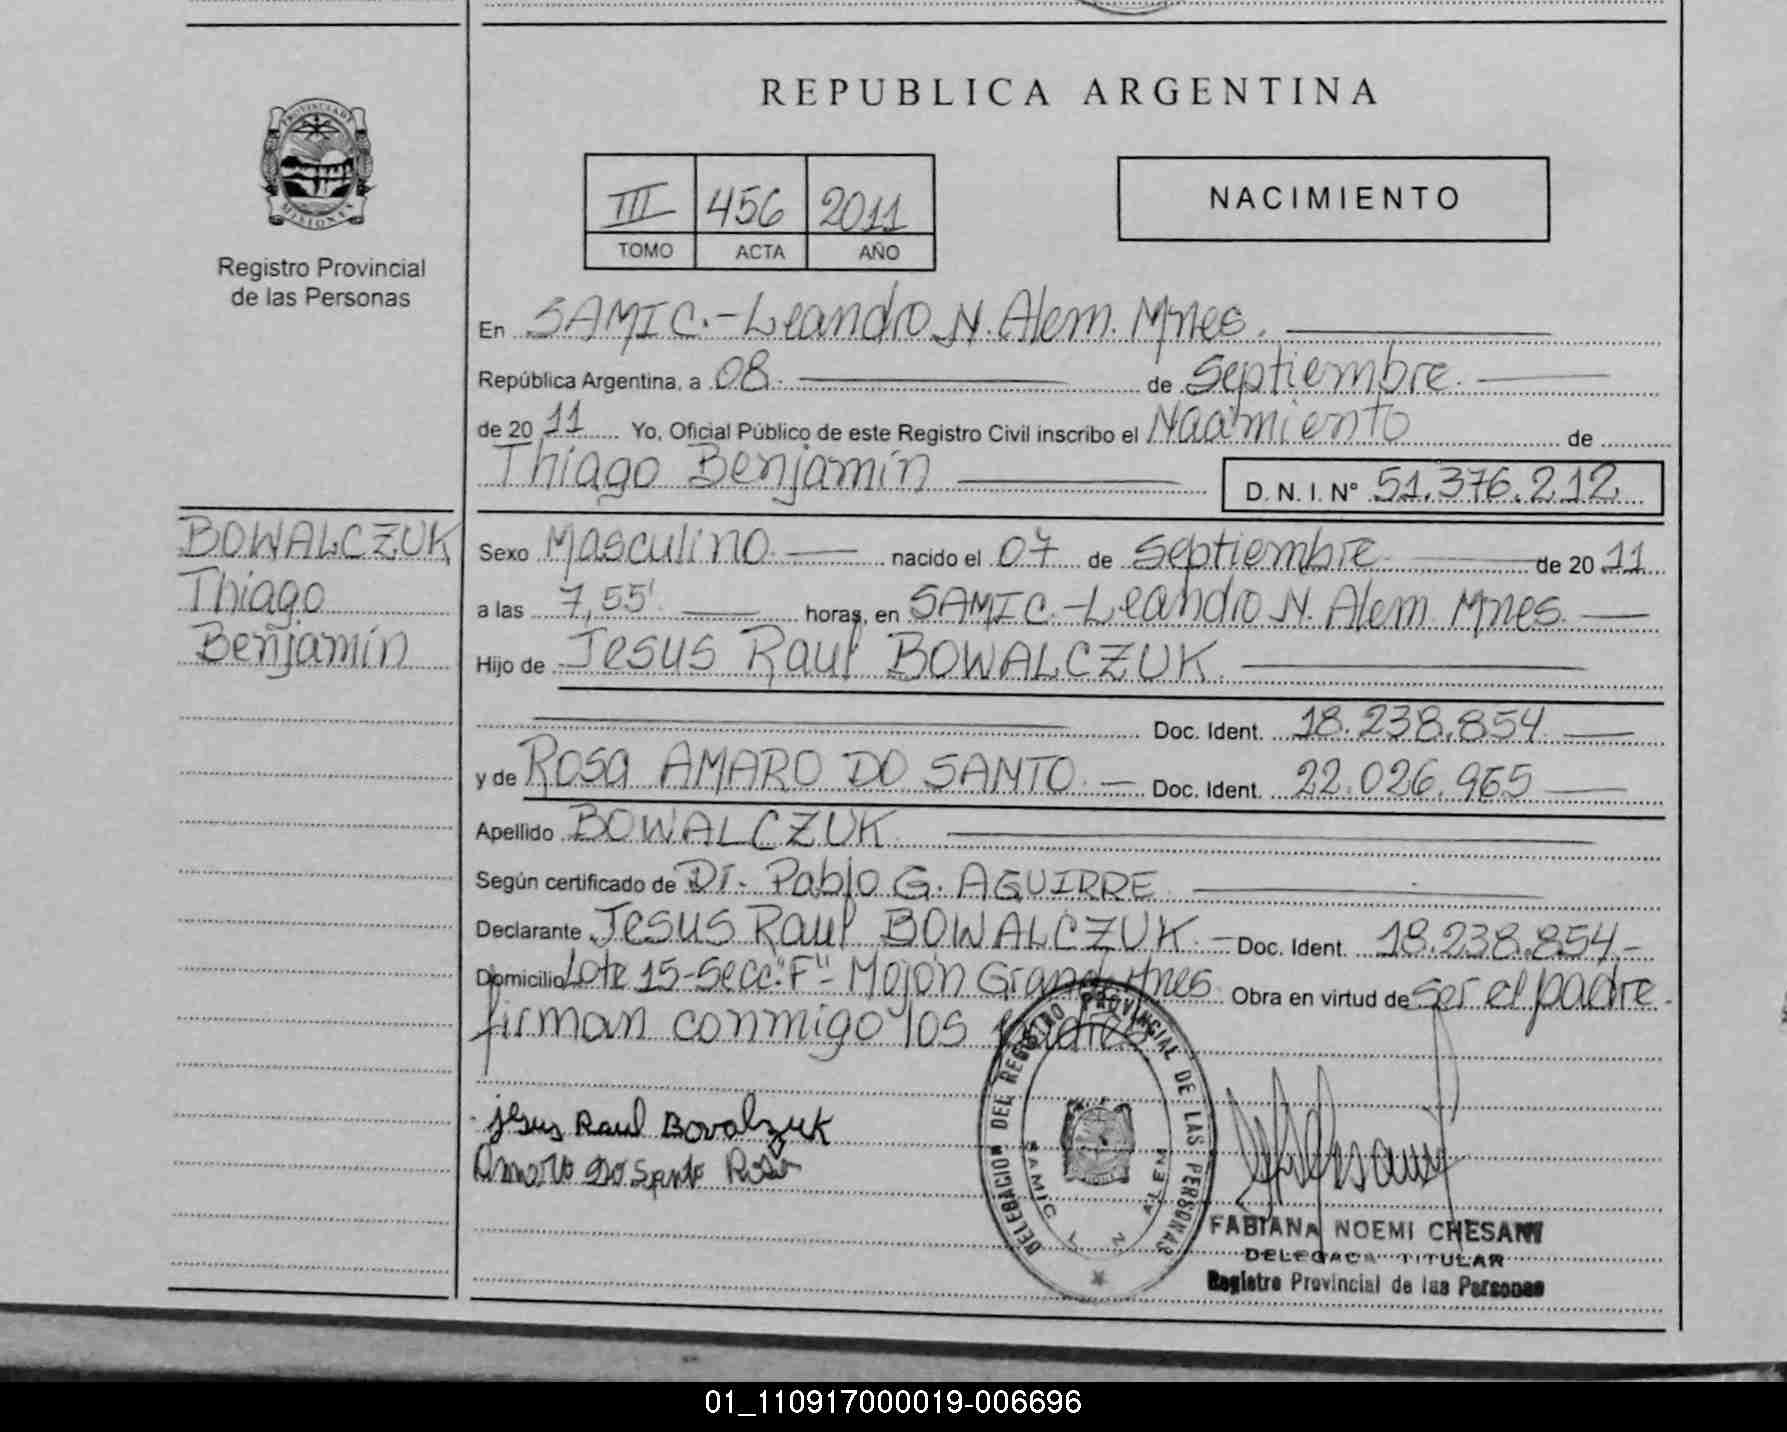 REPUBLICA ARGENTINA
PROVINCIA DE
MISIONES
Registro Provincial
de las Personas
III 456 2011
TOMO ACTA AÑO
NACIMIENTO
En SAMIC.-Leandro N. Alem. Mnes.
República Argentina, a 08. de Septiembre.
de 20 11 Yo, Oficial Público de este Registro Civil inscribo el Nacimiento de
Thiago Benjamín D. N. I. N° 51.376.212.
BOWALCZUK
Thiago
Benjamín
Sexo Masculino. nacido el 07 de Septiembre de 20 11
a las 7,55' horas, en SAMIC.-Leandro N. Alem. Mnes.
Hijo de Jesus Raul BOWALCZUK.
Doc. Ident. 18.238.854
y de Rosa AMARO DO SANTO. Doc. Ident. 22.026.965
Apellido BOWALCZUK.
Según certificado de Dr. Pablo G. AGUIRRE
Declarante Jesus Raul BOWALCZUK. - Doc. Ident. 18.238.854.-
Domicilio Lote 15-Secc."F"- Mojón Grande Mnes Obra en virtud de ser el padre.
firman conmigo los padres
jesus Raul Bovalzuk
Amaro Do Santo Rosa
DELEGACION DEL REGISTRO PROVINCIAL DE LAS PERSONAS
SAMIC L N ALEM
FABIANA NOEMI CHESANI
DELEGADA TITULAR
Registro Provincial de las Personas
01_110917000019-006696